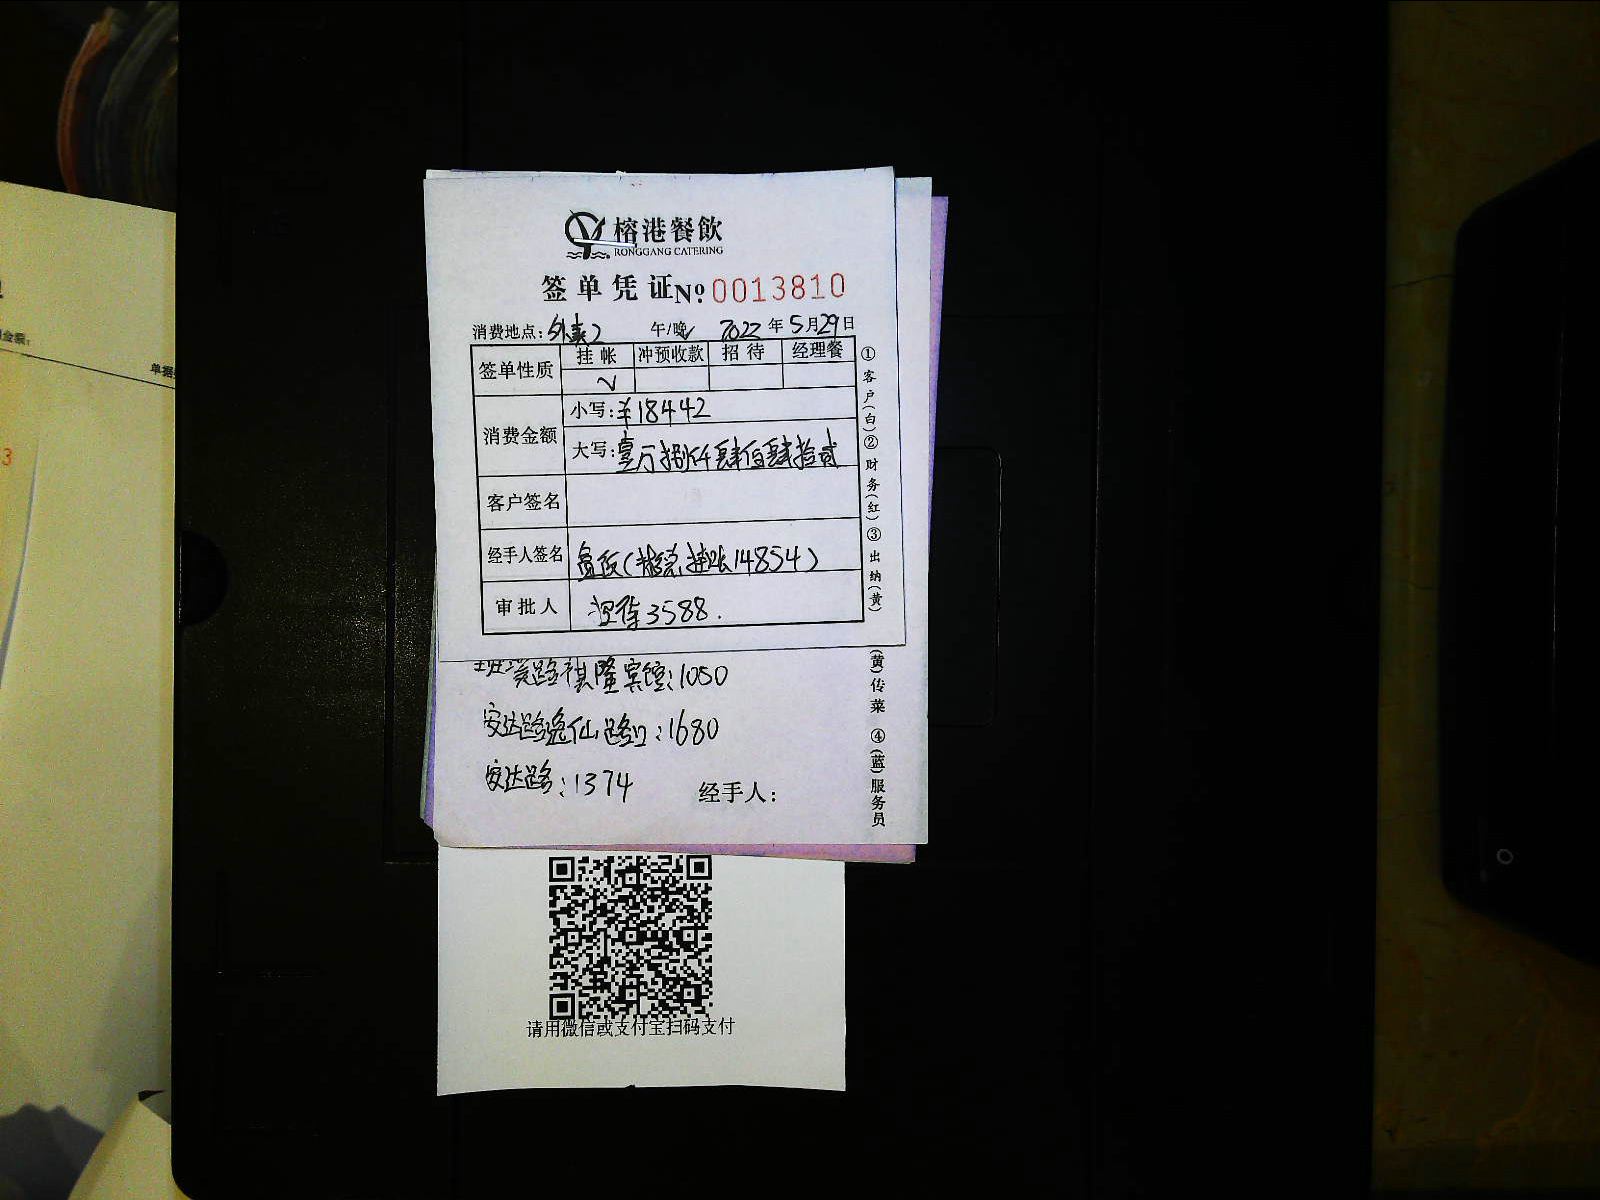 榕港餐飲
RONGGANG CATERING
签单凭证 № 0013810
消费地点: 外卖2 午/晚√ 2022年5月29日
签单性质 挂帐 冲预收款 招待 经理餐
√
消费金额
小写:¥18442
大写:壹万捌仟肆佰肆拾贰
客户签名
经手人签名 14854)
审批人 招待3588.
①客户(白)②财务(红)③出纳(黄)
路祺隆宾馆:1050
安达路逸仙路口:1680
安达路:1374
经手人:
(黄)传菜 ④(蓝)服务员
请用微信或支付宝扫码支付
金额:
单据
3